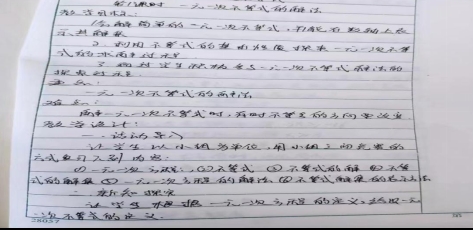 第1课时 一元一次不等式的解法
教学目标:
1、会解简单的一元一次不等式,并能在数轴上表示其解集
2、利用不等式的基本性质探求一元一次不等式的求解过程
3、
重点:
一元一次不等式的解法
难点:
解一元一次不等式时,有时不等号的方向要改变
教学设计:
一、活动导入
让学生以小组为单位,用小组之间竞赛的方式复习下列内容:
①一元一次方程;②不等式 ③不等式的解 ④不等
式的解集 ⑤一元一次方程的解法 ⑥不等式解集的表示方法
二、新知探究
让学生根据一元一次方程的定义,给出一元
一次不等式的定义.